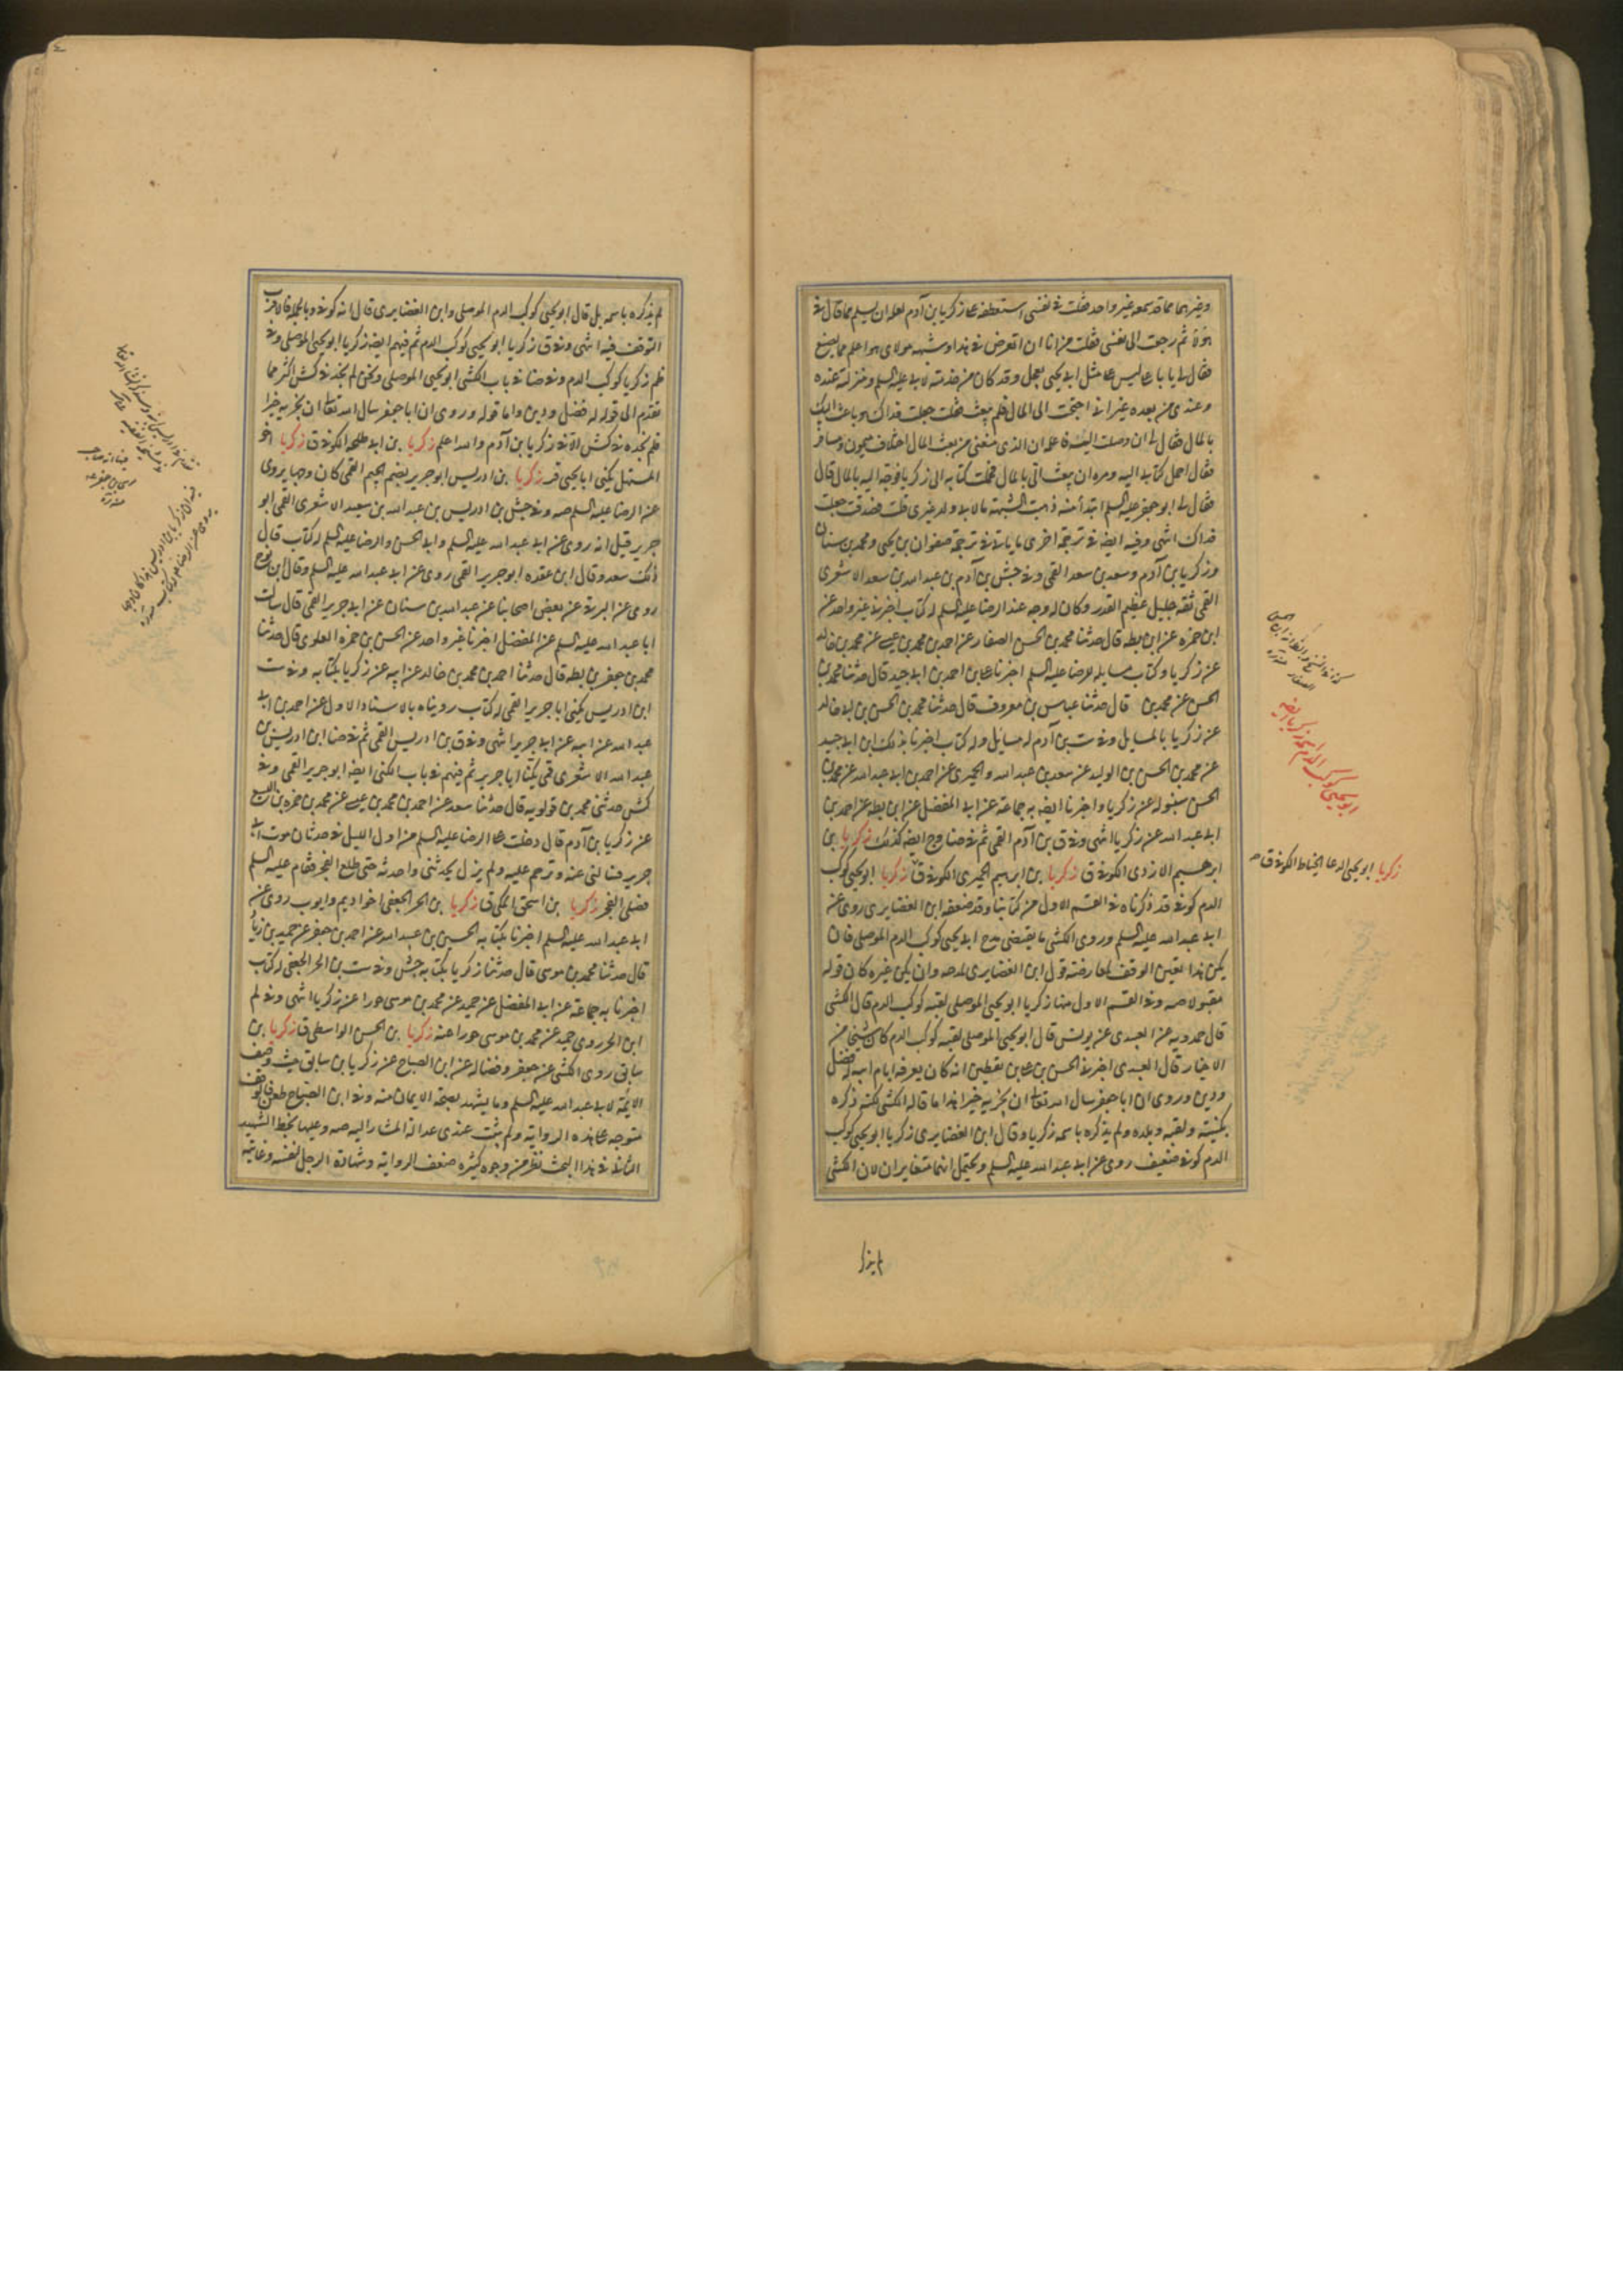 وغيرهما مما قد سمعه غير واحد فقلت في نفسي استعطفه على زكريا بن آدم لعله ان يسلم مما قال في
هؤلاء ثم رجعت الى نفسي فقلت من انا ان اتعرض في هذا وشبهه مولاى هو اعلم بما يصنع
فقال لى يا با على ليس على مثل ابى يحيى يعجل وقد كان من خدمته لابى عليه السلم ومنزلته عنده
وعندى من بعده غير انى احتجت الى المال فلم يبعث فقلت جعلت فداك هو باعث اليك
بالمال فقال لى ان وصلت اليه فاعلمه ان الذى منعنى من بعث المال اختلاف ميمون ومسافر
فقال احمل كتابى اليه ومره ان يبعث الى بالمال فحملت كتابه الى زكريا فوجه اليه بالمال قال
فقال لى ابو جعفر عليه السلم ابتداء منه ذهبت الشبهة ما لابى ولد غيرى قلت صدقت جعلت
فداك انتهى وفيه ايضه في ترجمة اخرى ما ياتى في ترجمة صفوان بن يحيى ومحمد بن سنان
وزكريا بن آدم وسعد بن سعد القمى وفي جش بن آدم بن عبد الله بن سعد الاشعرى
القمى ثقه جليل عظيم القدر وكان له وجه عند الرضا عليه السلم له كتاب اخبرنى غير واحد عن
ابن حمزه عن ابن بطه قال حدثنا محمد بن الحسن الصفار عن احمد بن محمد بن عيسى عن محمد بن خالد
عن زكريا وكتاب مسايله للرضا عليه السلم اخبرنا على بن احمد بن ابى جيد قال حدثنا محمد بن
الحسن عن محمد بن قال حدثنا عباس بن معروف قال حدثنا محمد بن الحسن بن ابى خالد
عن زكريا بالمسايل وفي ست بن آدم له مسائل وله كتاب اخبرنا بذلك ابن ابى جيد
عن محمد بن الحسن بن الوليد عن سعد بن عبد الله والحميرى عن احمد بن ابى عبد الله عن محمد بن
الحسن سنبوله عن زكريا واخبرنا ايضه به جماعة عن ابى المفضل عن ابن بطه عن احمد بن
ابى عبد الله عن زكريا انتهى وفي ق بن آدم القمى ثم في ضا وج ايضه كذلك زكريا بن
ابرهيم الازدى الكوفى ق زكريا بن ابرهيم الحميرى الكوفى ق زكريا ابو يحيى كوكب
الدم كوفى قد ذكرناه في القسم الاول من كتابنا وقد ضعفه ابن الغضايرى روى عن
ابى عبد الله عليه السلم وروى الكشى ما يقتضى مدح ابى يحيى كوكب الدم الموصلى فان
يكن هذا تعين الوقف لمعارضته قول ابن الغضايرى لمدحه وان يكن غيره كان قوله
مقبولا صه وفي القسم الاول منها زكريا ابو يحيى الموصلى لقبه كوكب الدم قال الكشى
قال حمدويه عن العبيدى عن يونس قال ابو يحيى الموصلى لقبه كوكب الدم كان شيخا من
الاخيار قال العبيدى اخبرنى الحسن بن على بن يقطين انه كان يعرفه ايام ابيه له فضل
ودين وروى ان ابا جعفر سال الله تعالى ان يجزيه خيرا هذا ما قاله الكشى لكنه ذكره
بكنيته ولقبه وبلده ولم يذكره باسمه زكريا وقال ابن الغضايرى زكريا ابو يحيى كوكب
الدم كوفى ضعيف روى عن ابى عبد الله عليه السلم ويحتمل انهما متغايران لان الكشى
زكريا ابو يحيى الدعا الخياط الكوفى ق صه
ابو يحيى كوكب الدم اسمه زكريا ايضه
لم يذكره باسمه بل قال ابو يحيى كوكب الدم الموصلى وابن الغضايرى قال انه كوفى وبالجملة فالاقرب
التوقف فيه انتهى وفي ق زكريا ابو يحيى كوكب الدم ثم فيهم ايضه زكريا ابو يحيى الموصلى وفي
ظم زكريا كوكب الدم وفي ضا في باب الكنى ابو يحيى الموصلى ونحن لم نجد في كش اكثر مما
تقدم الى قوله له فضل ودين واما قوله وروى ان ابا جعفر سال الله تعالى ان يجزيه خيرا
فلم نجده في كش الا في زكريا بن آدم والله اعلم زكريا بن ابى طلحه الكوفى ق زكريا اخو
المستهل يكنى ابا يحيى قر زكريا بن ادريس ابو جرير بضم الجيم القمى كان وجها يروى
عن الرضا عليه السلم صه وفي جش بن ادريس بن عبد الله بن سعيد الاشعرى القمى ابو
جرير قيل انه روى عن ابى عبد الله عليه السلم وابى الحسن والرضا عليه السلم له كتاب قال
ذلك سعد وقال ابن عقده ابو جرير القمى روى عن ابى عبد الله عليه السلم وقال ابن نوح
روى عن البرقى عن بعض اصحابنا عن عبد الله بن سنان عن ابى جرير القمى قال سالت
ابا عبد الله عليه السلم عن المفضل اخبرنا غير واحد عن الحسن بن حمزه العلوى قال حدثنا
محمد بن جعفر بن بطه قال حدثنا احمد بن محمد بن خالد عن ابيه عن زكريا بكتابه وفي ست
ابن ادريس يكنى ابا جرير القمى له كتاب رويناه بالاسناد الاول عن احمد بن ابى
عبد الله عن ابيه عن ابى جرير انتهى وفي ق بن ادريس القمى ثم في ضا ابن ادريس بن
عبد الله الاشعرى قمى يكنى ابا جرير ثم فيهم في باب الكنى ايضه ابو جرير القمى وفي
كش حدثنى محمد بن قولويه قال حدثنا سعد عن احمد بن محمد بن عيسى عن محمد بن حمزه بن اليسع
عن زكريا بن آدم قال دخلت على الرضا عليه السلم من اول الليل في حدثان موت ابى
جرير فسالنى عنه وترحم عليه ولم يزل يحدثنى واحدثه حتى طلع الفجر فقام عليه السلم
فصلى الفجر زكريا بن اسحق المكى ق زكريا بن الحر الجعفى اخو اديم وايوب روى عن
ابى عبد الله عليه السلم اخبرنا بكتابه الحسين بن عبيد الله عن احمد بن جعفر عن حميد بن زياد
قال حدثنا محمد بن موسى قال حدثنا زكريا بكتابه جش وفي ست بن الحر الجعفى له كتاب
اخبرنا به جماعة عن ابى المفضل عن حميد عن محمد بن موسى حورا عن زكريا انتهى وفي لم
ابن الحر روى حميد عن محمد بن موسى حورا عنه زكريا بن الحسن الواسطى ق زكريا بن
سابق روى الكشى عن جعفر وفضاله عن ابن الصباح عن زكريا بن سابق حيث وصف
الائمة لابى عبد الله عليه السلم وما يشهد بصحة الايمان منه وفي ابن الصباح طعن فالوقف
متوجه على هذه الرواية ولم يثبت عندى عدالة المشار اليه صه وعليها بخط الشهيد
الثانى في هذا البحث نظر من وجوه كثيره ضعف الرواية وشهادة الرجل لنفسه وغايته